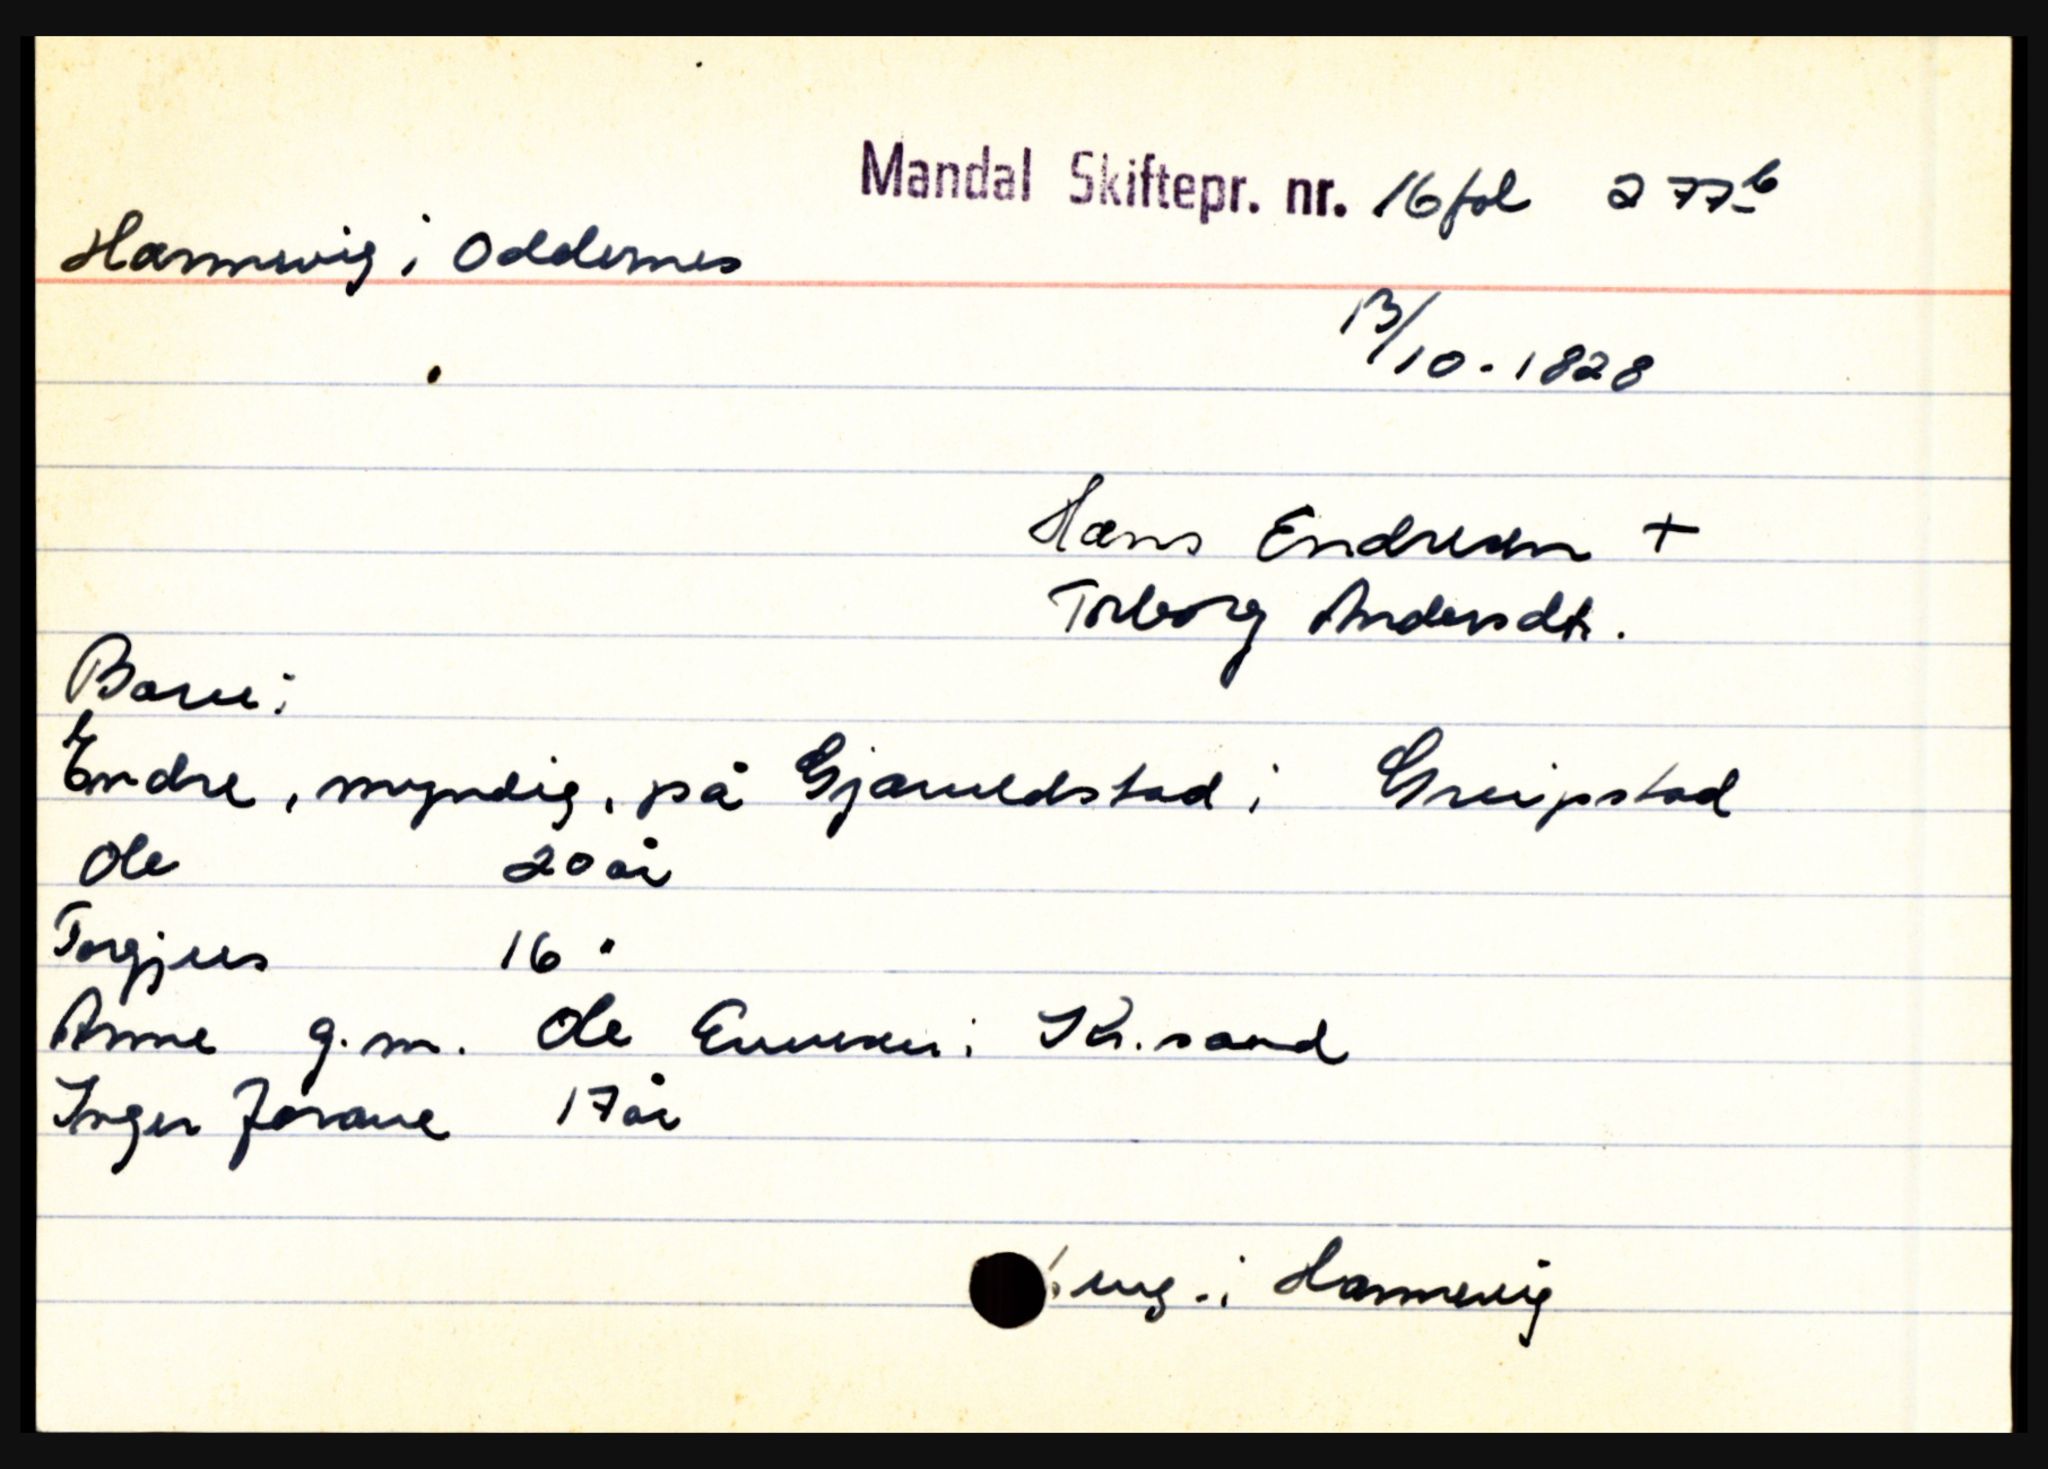 Mandal Skiftepr. nr. 16 fol 277b
Hannevig i Oddernes
13/10-1828
Hans Endresen +
Torborg Andersdtr.
Barn:
Endre, myndig, på Gjæruldstad i Greipstad
Ole 20 år
Torgjus 16 "
Anne g.m. Ole Evensen i Kr.sand
Inger Jorane 17 år
eng. i Hannevig